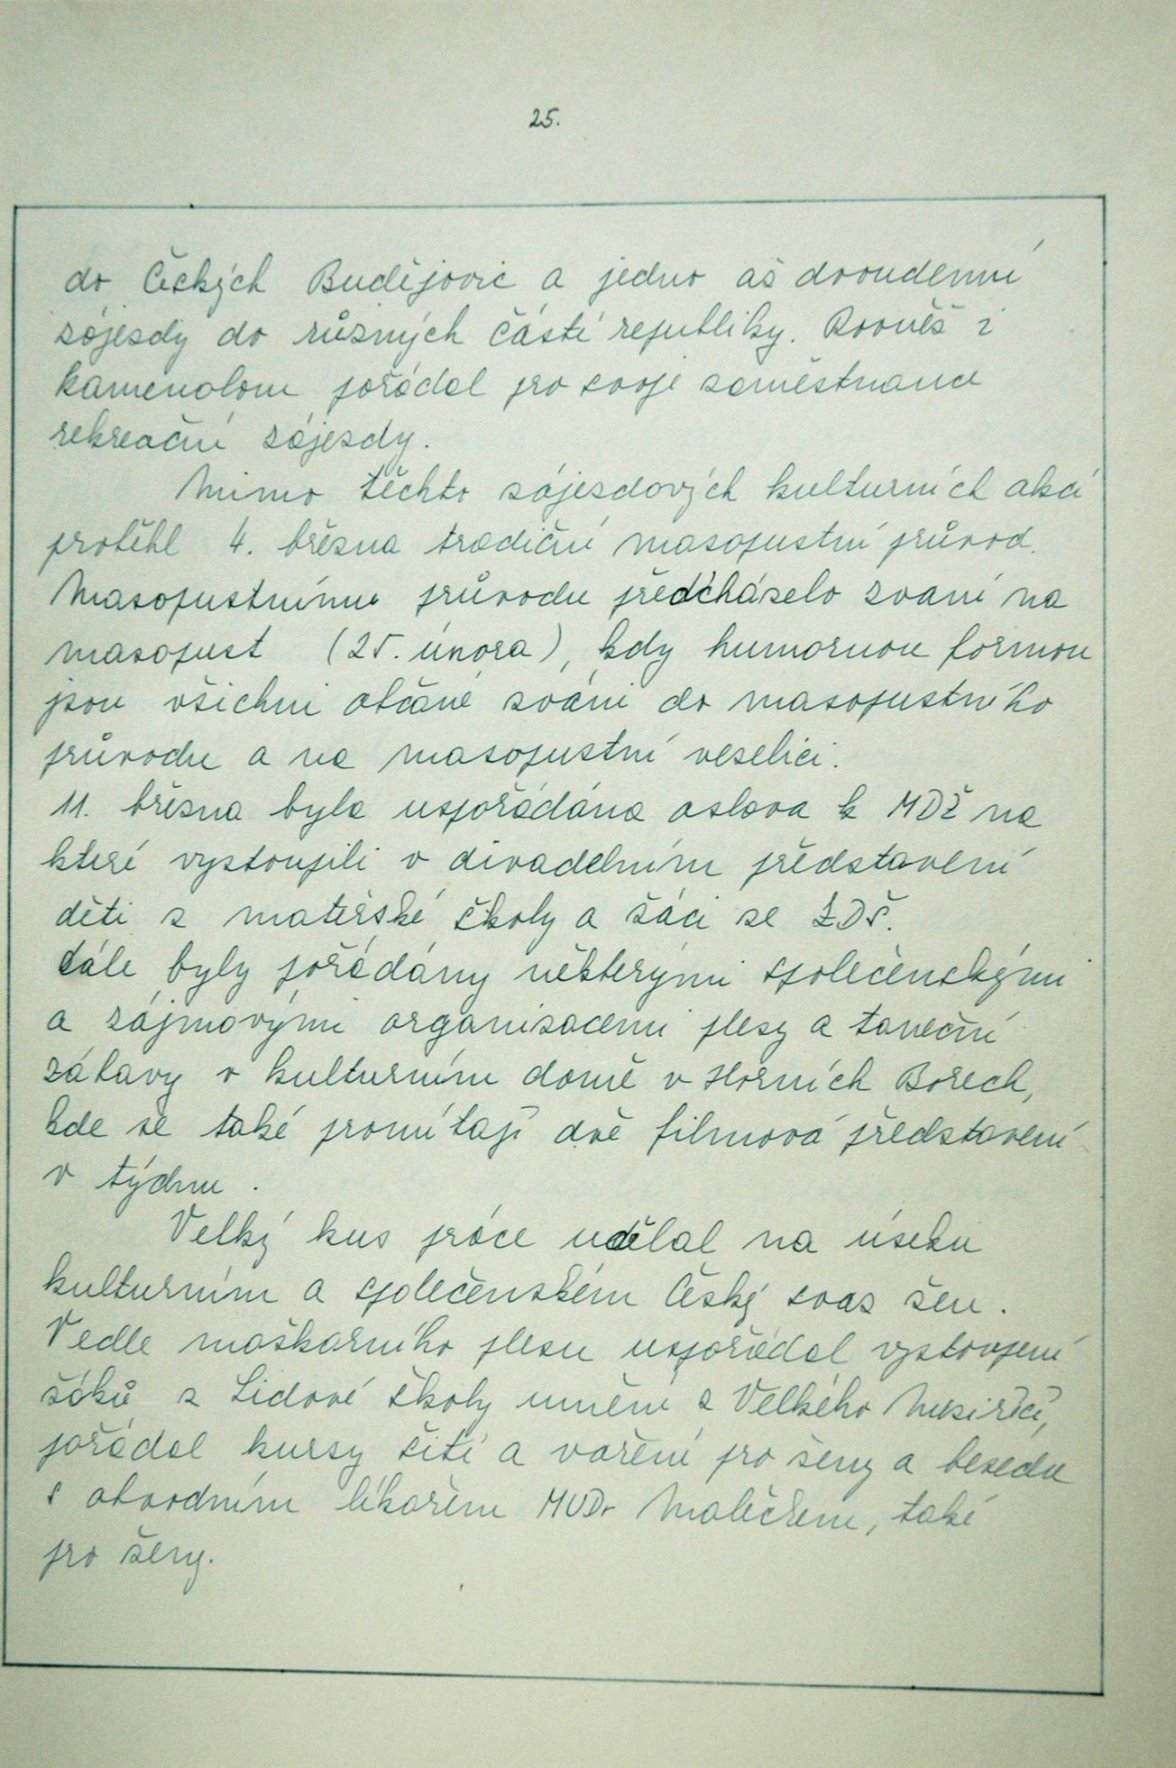 25.
do Českých Budějovic a jedno až dvoudenní
zájezdy do různých částí republiky. Rovněž i
kamenolom pořádal pro svoje zaměstnance
rekreační zájezdy.
Mimo těchto zájezdových kulturních akcí
proběhl 4. března tradiční masopustní průvod.
Masopustnímu průvodu předcházelo zvaní na
masopust (25. února), kdy humornou formou
jsou všichni občané zváni do masopustního
průvodu a na masopustní veselici.
11. března byla uspořádána oslava k MDŽ na
které vystoupili v divadelním představení
děti z mateřské školy a žáci ze ZDŠ.
Dále byly pořádány některými společenskými
a zájmovými organizacemi plesy a taneční
zábavy v kulturním domě v Horních Borech,
kde se také promítají dvě filmová představení
v týdnu.
Velký kus práce udělal na úseku
kulturním a společenském Český svaz žen.
Vedle maškarního plesu uspořádal vystoupení
žáků z Lidové školy umění z Velkého Meziříčí,
pořádal kursy šití a vaření pro ženy a besedu
s obvodním lékařem MUDr Malečkem, také
pro ženy.